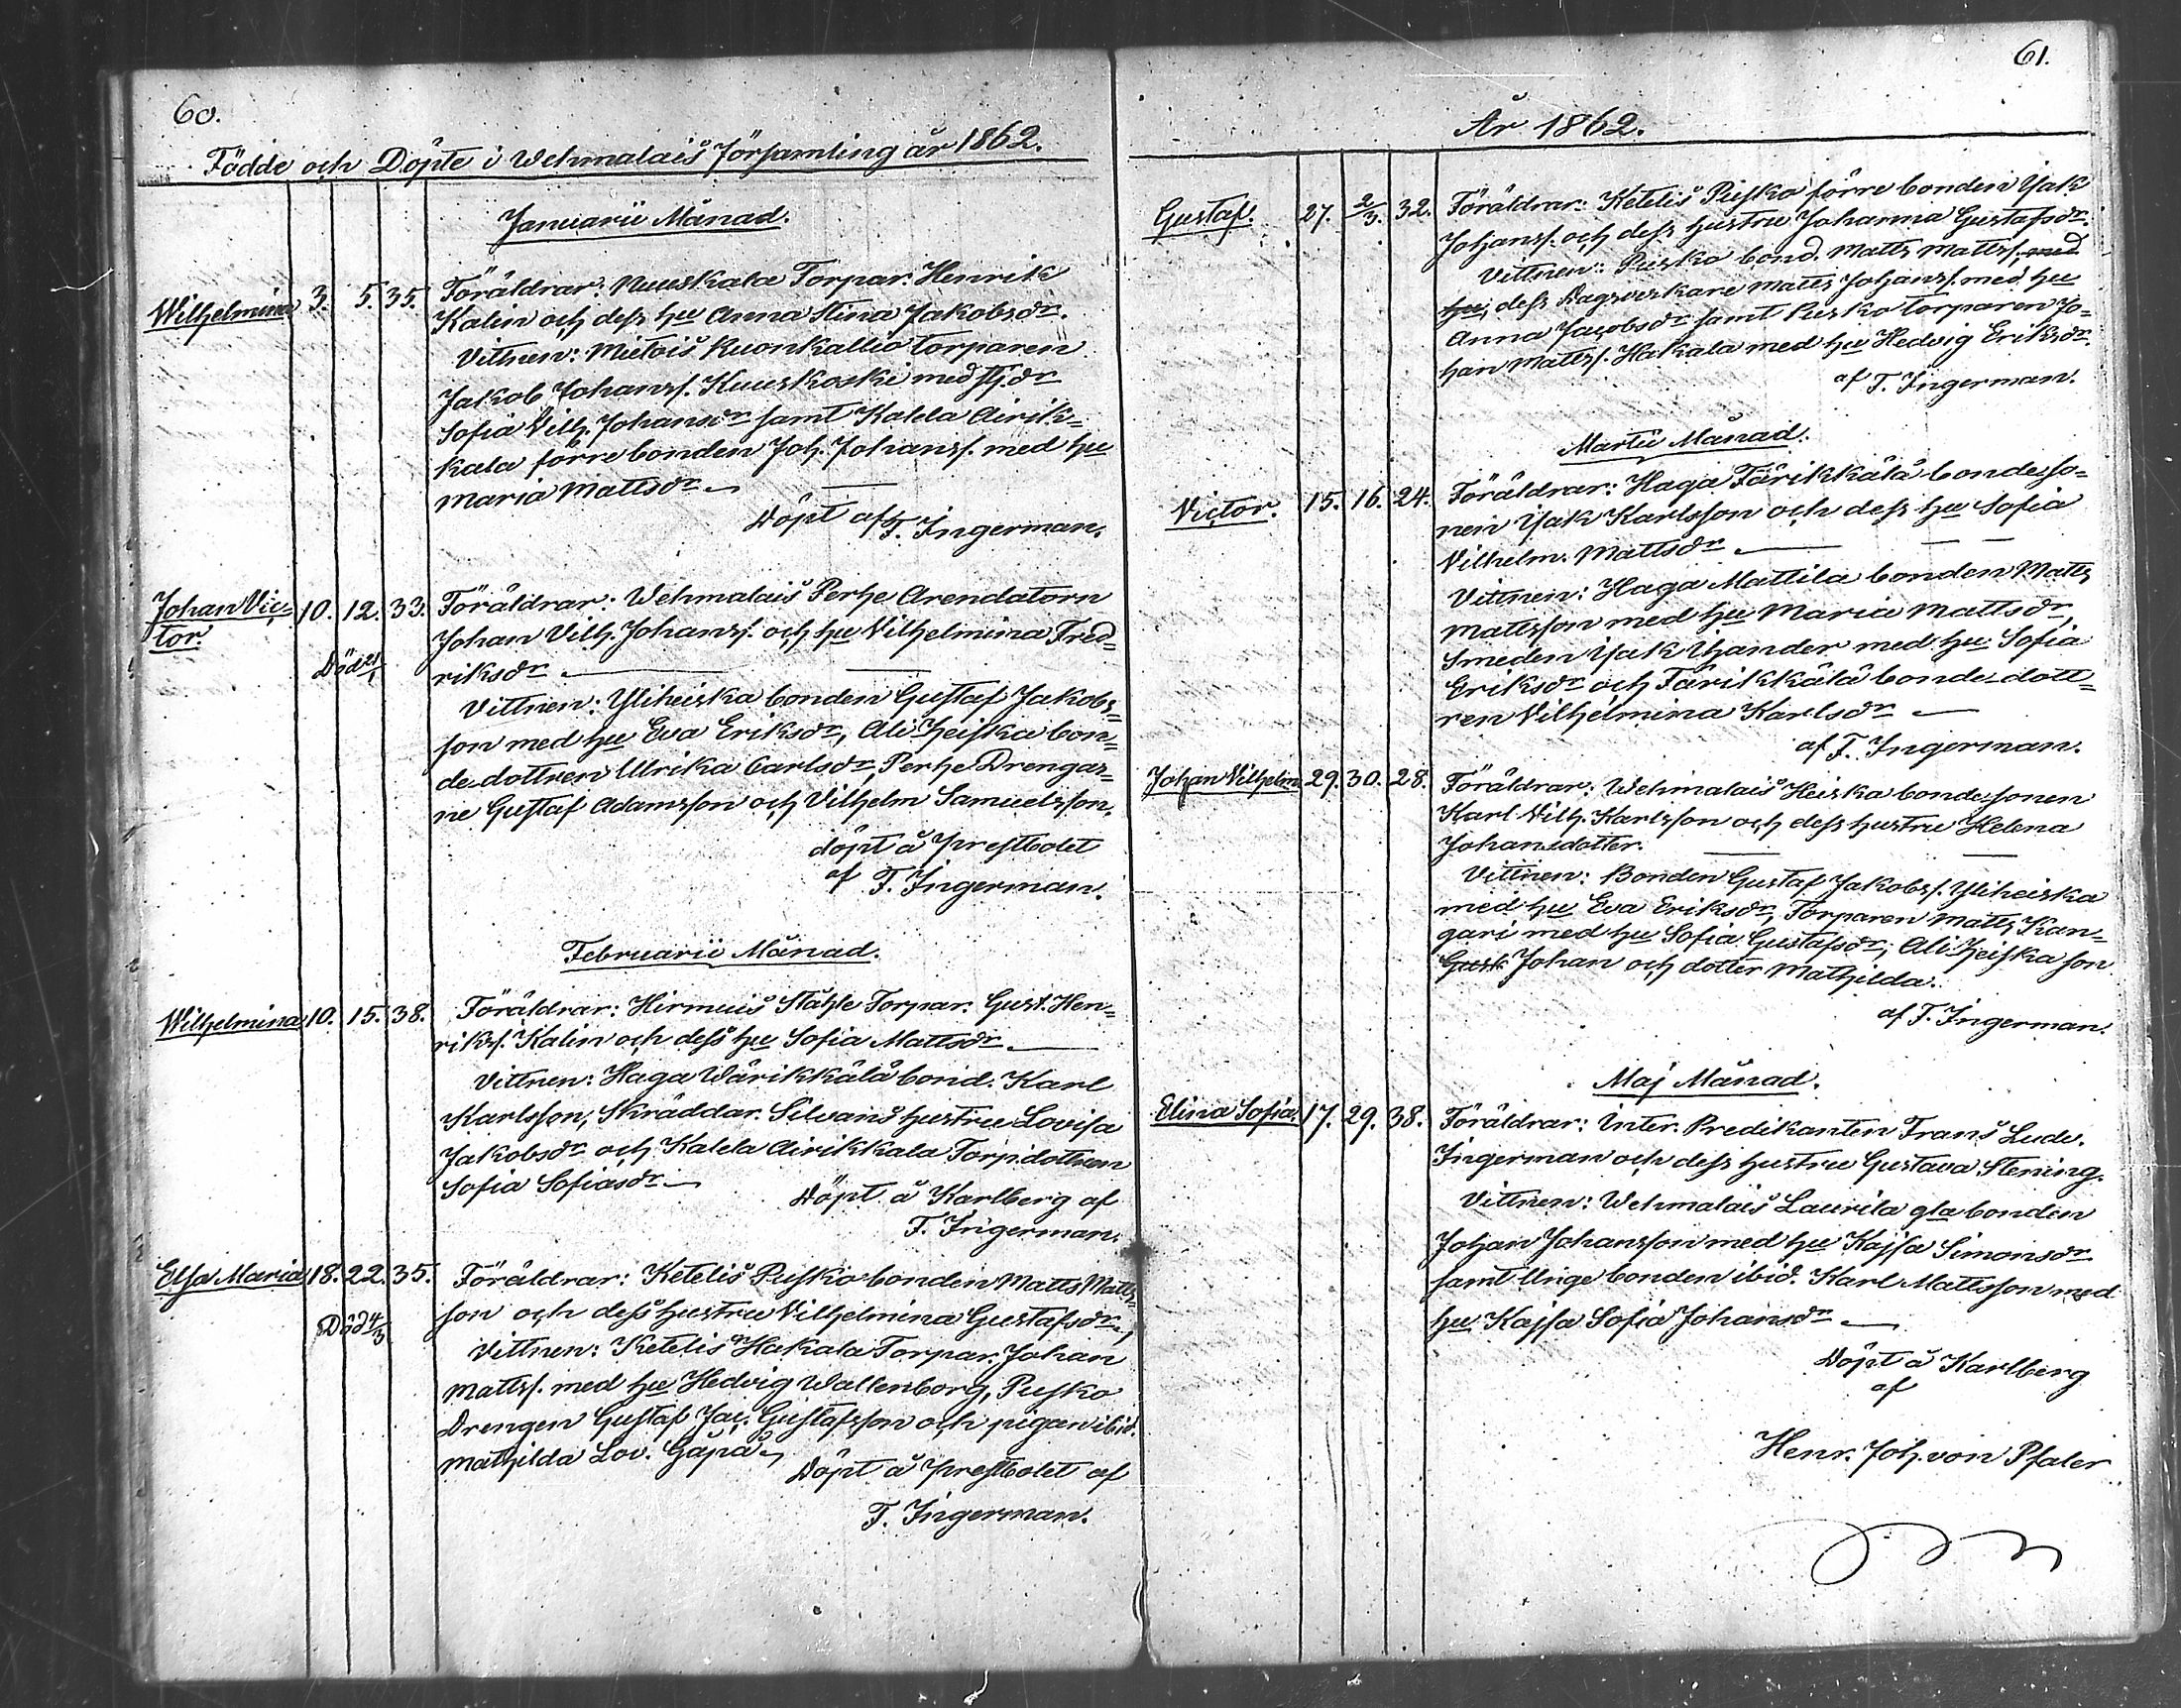 60.
Födde och Döpte i Wehmalais församling år 1862.
Januarii Månad.
Wilhelmina 3. 5. 35. Föräldrar: Nuuskala Torpar. Henrik
Kalin och dess hu Anna Stina Jakobsdr.
Vittnen: Mietois Kuonkallio torparen
Jakob Johanss. Kuuskoski med
Sofia Vilh. Johansdr samt Kalela Airik=
kala förre bonden Joh. Johanss. med hu
Maria Mattsdr
Döpt af F. Ingerman.
Johan Vic= 10. 12. 33. Föräldrar: Wehmalais Perhe Arendatorn
tor. Johan Vilh. Johanss. och hu Vilhelmina Fred=
Död 21/1 riksdr
Vittnen: Yliheiska bonden Gustaf Jakobs=
son med hu Eva Eriksdr, Ali Heiska bon=
de dottren Ulrika Carlsdr, Perhe Drengar=
ne Gustaf Adamsson och Vilhelm Samuelsson.
döpt å prestbolet
af F. Ingerman.
Februarii Månad.
Wilhelmina 10. 15. 38. Föräldrar: Hirmuis Ståhle Torpar. Gust. Hen=
rikss. Kalin och dess hu Sofia Mattsdr
Vittnen: Haga Wärikkälä bond. Karl
Karlsson, Skräddar. Silvans hustru Lovisa
Jakobsdr och Kalela Airikkala Torp.dottren
Sofia Sofiasdr
Döpt å Karlberg af
F. Ingerman.
Elsa Maria 18. 22. 35. Föräldrar: Ketelis Pusko bonden Matts Matts=
son och dess hustru Vilhelmina Gustafsdr,
Död 4/3 Vittnen: Ketelis Hakala Torpar. Johan
Mattss. med hu Hedvig Wallenborg, Pusko
Drengen Gustaf Jac. Gustafsson och pigan ibid.
Mathilda Lov. Gäpä
Döpt å prestbolet af
F. Ingerman.
61.
År 1862.
Gustaf. 27. 2/3. 32. Föräldrar: Ketelis Pusko förre bonden Isak
Johanss. och dess hustru Johanna Gustafsdr.
Vittnen: Pusko bond. Matts Mattss. med
hu, dess Dagsverkare Matts Johanss. med hu
Anna Jacobsdr samt Pusko torparen Jo=
han Mattss. Hakala med hu Hedvig Eriksdr.
af F. Ingerman.
Martii Månad.
Victor. 15. 16. 24. Föräldrar: Haga Färikkälä bondeso=
nen Isak Karlsson och dess hu Sofia
Vilhelm. Mattsdr
Vittnen: Haga Mattila bonden Matts
Mattsson med hu Maria Mattsdr,
Smeden Isak Isander med hu Sofia
Eriksdr och Färikkälä bonde-dott=
ren Vilhelmina Karlsdr
af F. Ingerman.
Johan Vilhelm 29. 30. 28. Föräldrar: Wehmalais Heiska bondesonen
Karl Vilh. Karlsson och dess hustru Helena
Johansdotter.
Vittnen: Bonden Gustaf Jakobss. Yliheiska
med hu Eva Eriksdr, Torparen Matts Kan=
gari med hu Sofia Gustafsdr, Ali Heiska son
Gust Johan och dotter Mathilda.
af F. Ingerman.
Maj Månad.
Elina Sofia. 17. 29. 38. Föräldrar: Inter. Predikanten Frans Ludv.
Ingerman och dess hustru Gustava Stening.
Vittnen: Wehmalais Laurila gla bonden
Johan Johansson med hu Kajsa Simonsdr
samt Unge bonden ibid. Karl Mattsson med
hu Kajsa Sofia Johansdr
Döpt å Karlberg
af
Henr. Joh. von Pfaler